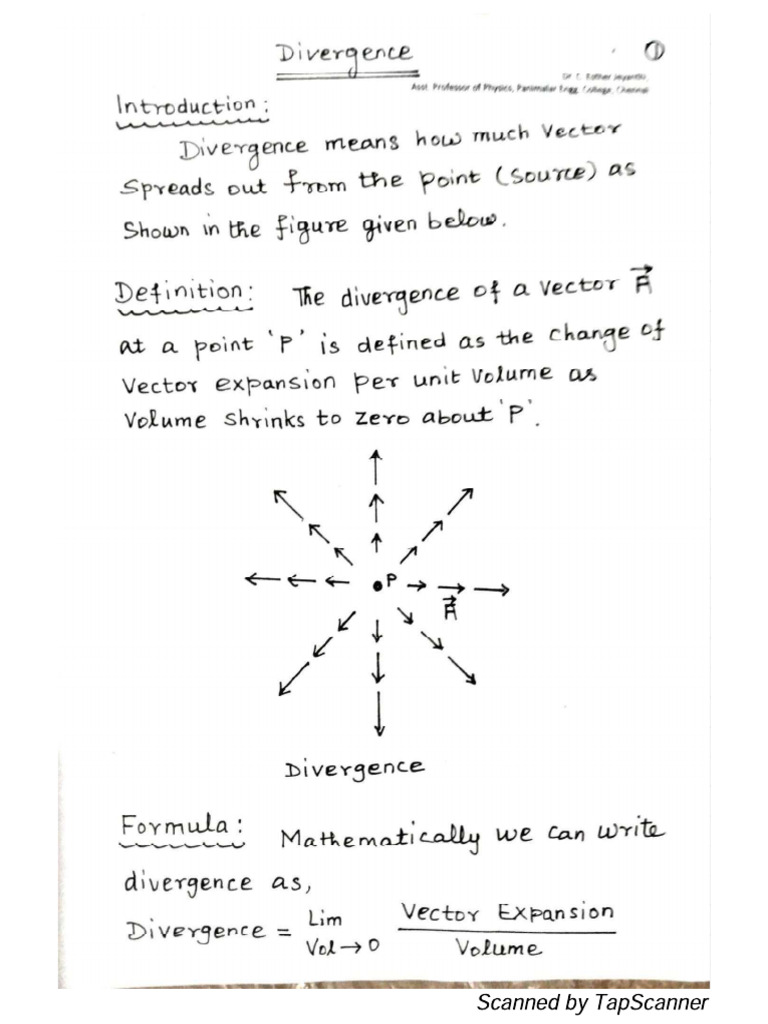 Divergence
①
Asst. Professor of Physics, Panimalar Engg. College, Chennai
Introduction:
Divergence means how much Vector
Spreads out from the point (Source) as
Shown in the figure given below.
Definition: The divergence of a vector A⃗
at a point 'P' is defined as the change of
Vector expansion per unit Volume as
Volume shrinks to zero about 'P'.
P
A⃗
Divergence
Formula: Mathematically we can write
divergence as,
Divergence = Lim Vol→0 Vector Expansion / Volume
Scanned by TapScanner